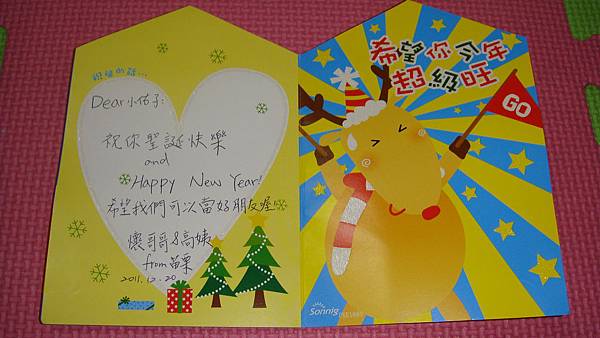 想說的話...
Dear 小佑子:
祝你聖誕快樂
and
Happy New Year!
希望我們可以當好朋友喔!
懷哥哥&高姨
from 苗栗
2011.12.20
希望你今年
超級旺
GO
Sonnig